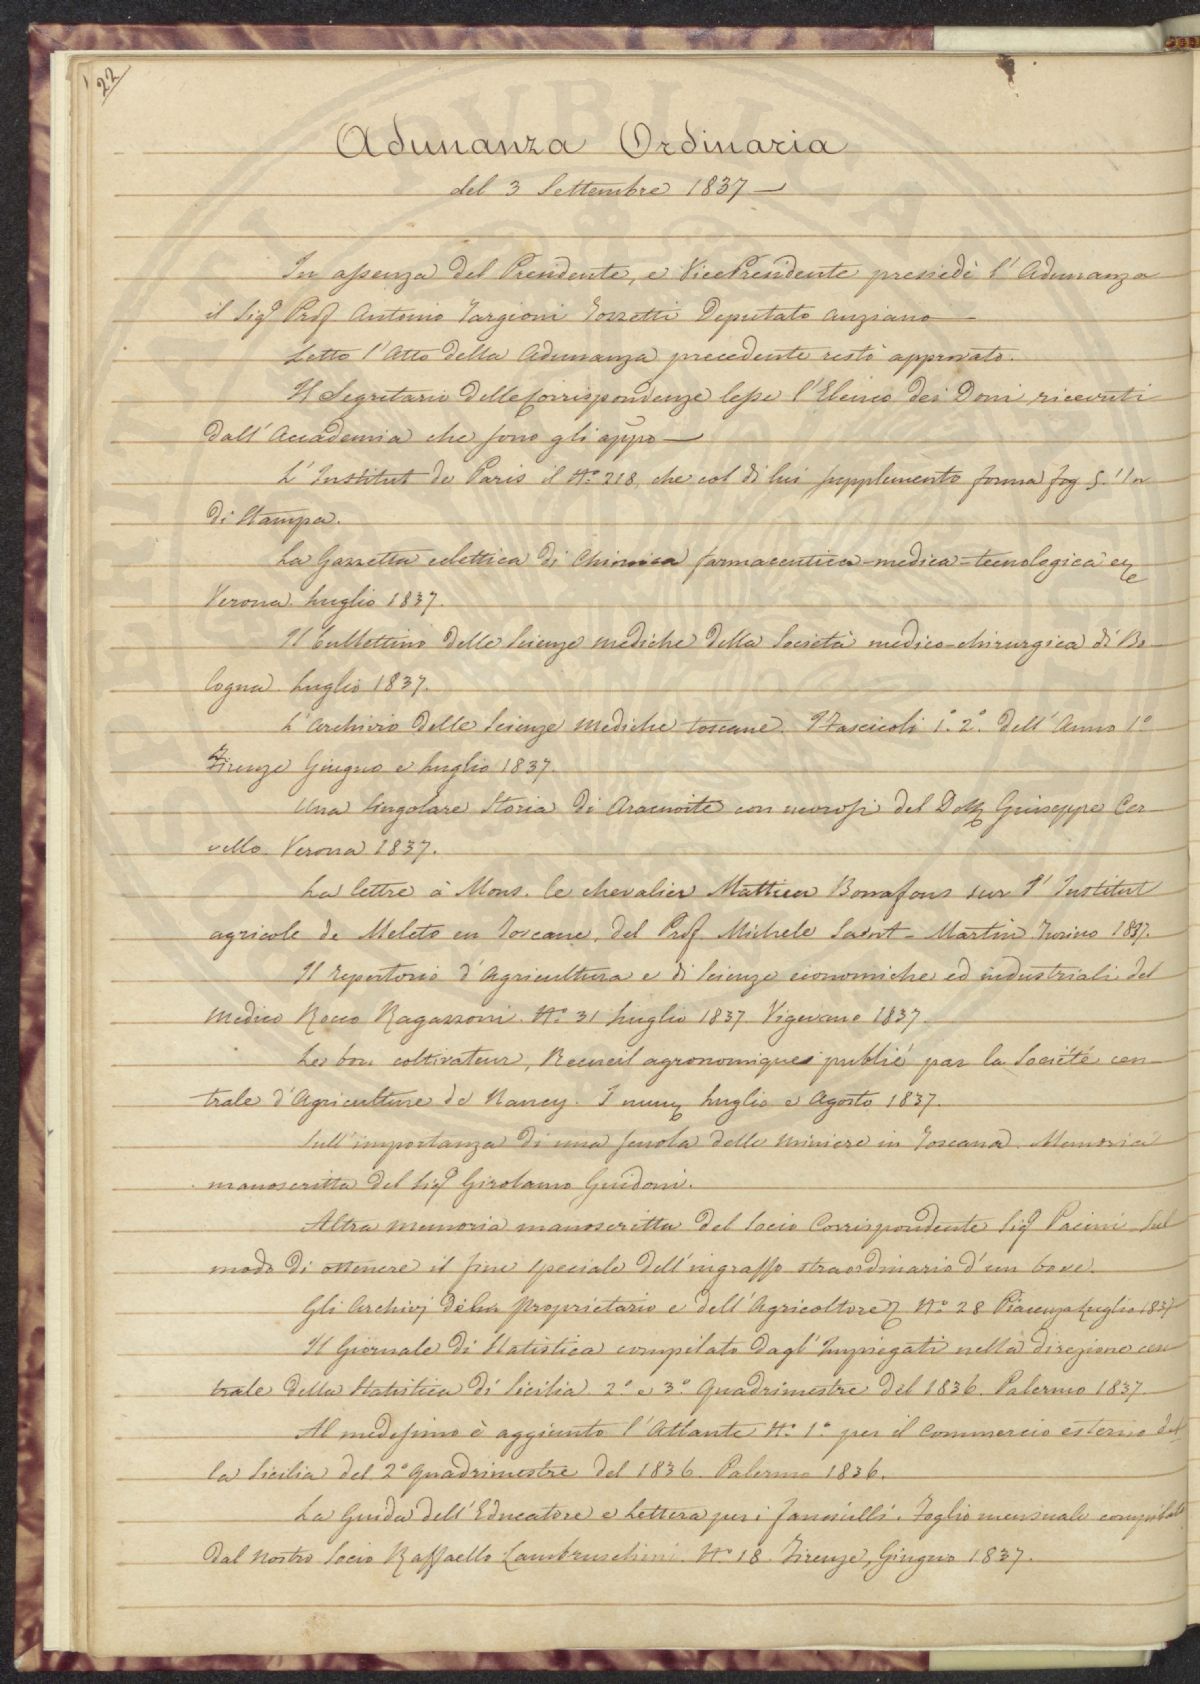 22
Adunanza Ordinaria
del 3 Settembre 1837 —
In assenza del Presidente, e VicePresidente presiedè l'Adunanza
il Sigr Prof Antonio Targioni Tozzetti Deputato anziano —
Letto l'Atto della Adunanza precedente restò approvato.
Il Segretario delle Corrispondenze lesse l'Elenco dei Doni ricevuti
dall'Accademia che sono gli appo —
L'Institut de Paris il No. 218, che col di lui supplemento forma fog 5.
di Stampa.
La Gazzetta eclettica di Chimica farmaceutica-medica-tecnologica ec
Verona. Luglio 1837.
Il bullettino delle Scienze mediche della Società medico-chirurgica di Bo-
logna. Luglio 1837.
L'Archivio delle Scienze Mediche toscane. I Fascicoli 1.° 2.° dell'Anno 1°
Firenze Giugno e Luglio 1837.
Una Singolare Storia di Aracnoite con nevrosi del Dott Giuseppe Cer-
vello. Verona 1837.
La lettre à Mons. le chevalier Mattieu Bonafous sur l'Institut
agricole de Meleto en Toscane, del Prof. Michele Saint-Martin. Turino 1837.
Il repertorio d'Agricultura e di Scienze economiche ed industriali del
Medico Rocco Ragazzoni. No. 31 Luglio 1837. Vigevano 1837.
Le bon coltivateur, Recueil agronomique publié par la Société cen-
trale d'Agriculture de Nancy. I num Luglio e Agosto 1837.
Sull'importanza di una scuola delle miniere in Toscana. Memoria
manoscritta del Sigr Girolamo Guidoni.
Altra memoria manoscritta del Socio Corrispondente Sigr Pacini sul
modo di ottenere il fine speciale dell'ingrasso straordinario d'un bove.
Gli Archivj del proprietario e dell'Agricoltore No. 28 Piacenza Luglio 1837
Il Giornale di Statistica compilato dagl'Impiegati nella direzione cen
trale della Statistica di Sicilia. 2.° e 3.° Quadrimestre del 1836. Palermo 1837
Al medesimo è aggiunto l'Atlante No. 1.° per il Commercio esterno del
la Sicilia del 2° Quadrimestre del 1836. Palermo 1836.
La Guida dell'Educatore e Lettura per i fanciulli. Foglio mensuale compilato
dal nostro Socio Raffaello Lambruschini. No 18. Firenze, Giugno 1837.